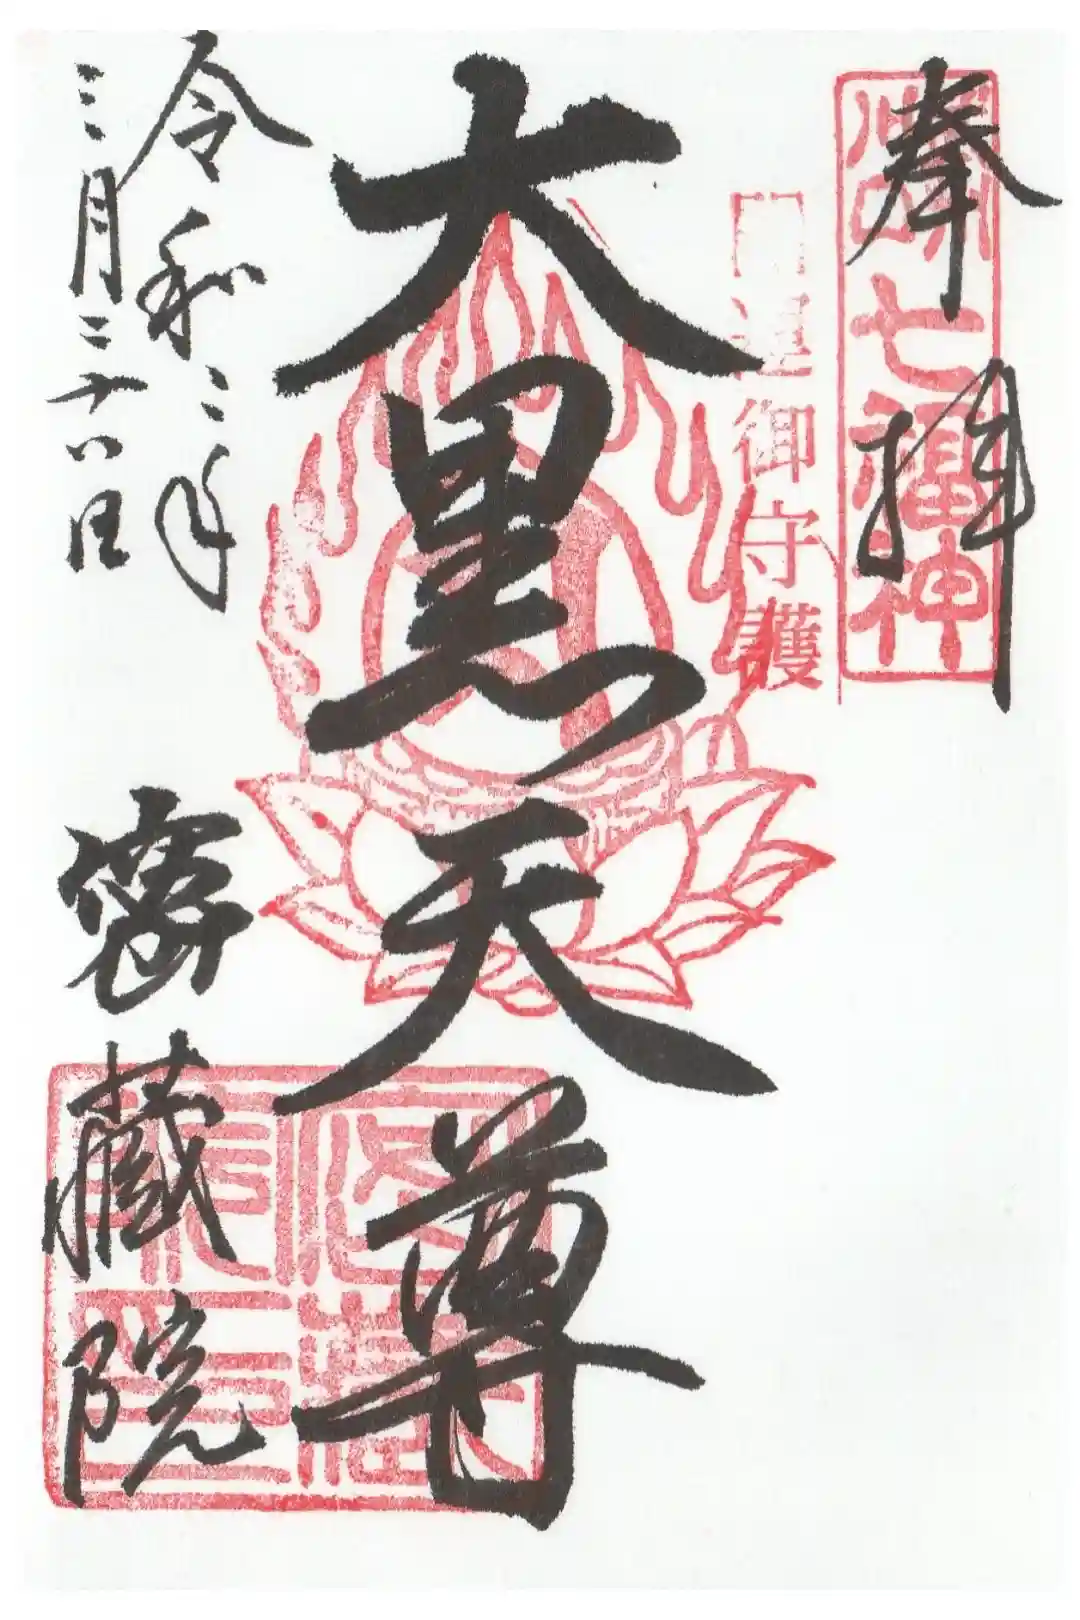 奉拝
七福神
運御守護
大黒天尊
令和二年
三月二十八日
密蔵院